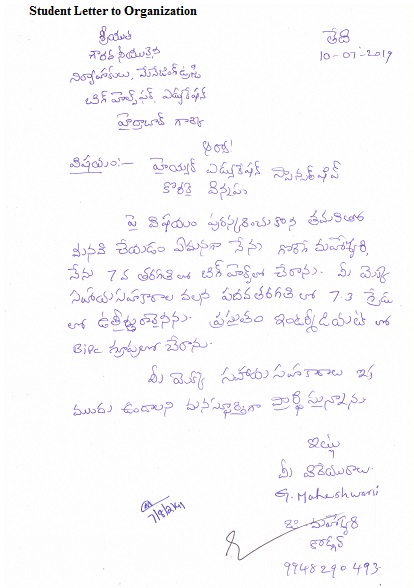 Student Letter to Organization
శ్రీయుత
గౌరవనీయులైన
తేది
10-07-2019
నిర్వాహకులు, మేనేజింగ్ ట్రస్టి
బిగ్ హెల్ప్ ఫర్ ఎడ్యుకేషన్
హైద్రాబాద్ గార్కి
విషయం:- హైయ్యర్ ఎడ్యుకేషన్ స్పాన్సర్‌షిప్
కొరకై విన్నపం
పై విషయం పురస్కరించుకొని తమరితో
మనవి చేయడం ఏమనగా నేను మహేశ్వరి,
నేను 7వ తరగతి లో బిగ్ హెల్ప్‌లో చేరాను. మీ యొక్క
సహాయ సహకారాల వలన పదవ తరగతి లో 7.3 గ్రేడు
లో ఉత్తీర్ణురాలైనాను. ప్రస్తుతం ఇంటర్మీడియట్ లో
BiPC గ్రూపులో చేరాను.
మీ యొక్క సహాయ సహకారాలు ఇక
ముందు ఉండాలని మనస్ఫూర్తిగా ప్రార్థిస్తున్నాను
ఇట్లు
మీ విధేయురాలు.
G. Maheshwari
మహేశ్వరి
99482 90 493.